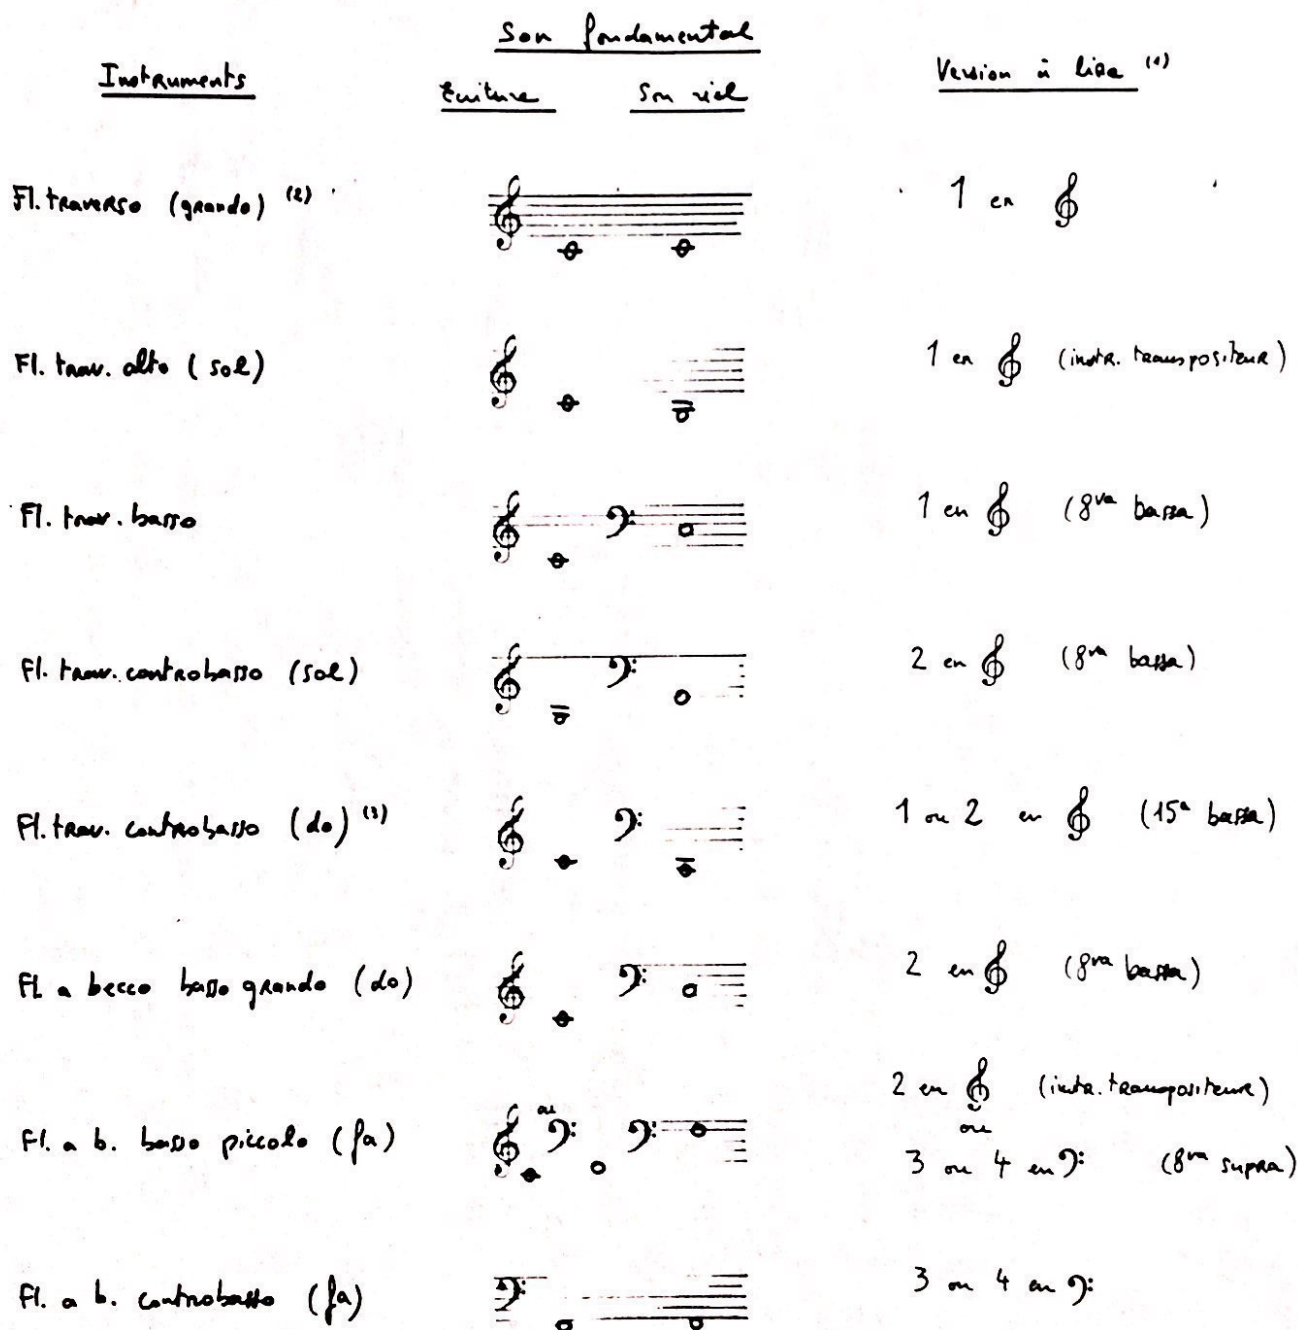 Son fondamental
Instruments Ecriture Son réel Version à lire (1)
Fl. traverso (grando) (2) 1 en
Fl. trav. alto (sol) 1 en (instr. transpositeur)
Fl. trav. basso 1 en (8va bassa)
Fl. trav. controbasso (sol) 2 en (8va bassa)
Fl. trav. controbasso (do) (3) 1 ou 2 en (15a bassa)
Fl. a becco basso grando (do) 2 en (8va bassa)
2 en (instr. transpositeur)
ou ou
Fl. a b. basso piccolo (fa) 3 ou 4 en (8va supra)
Fl. a b. controbasso (fa) 3 ou 4 en